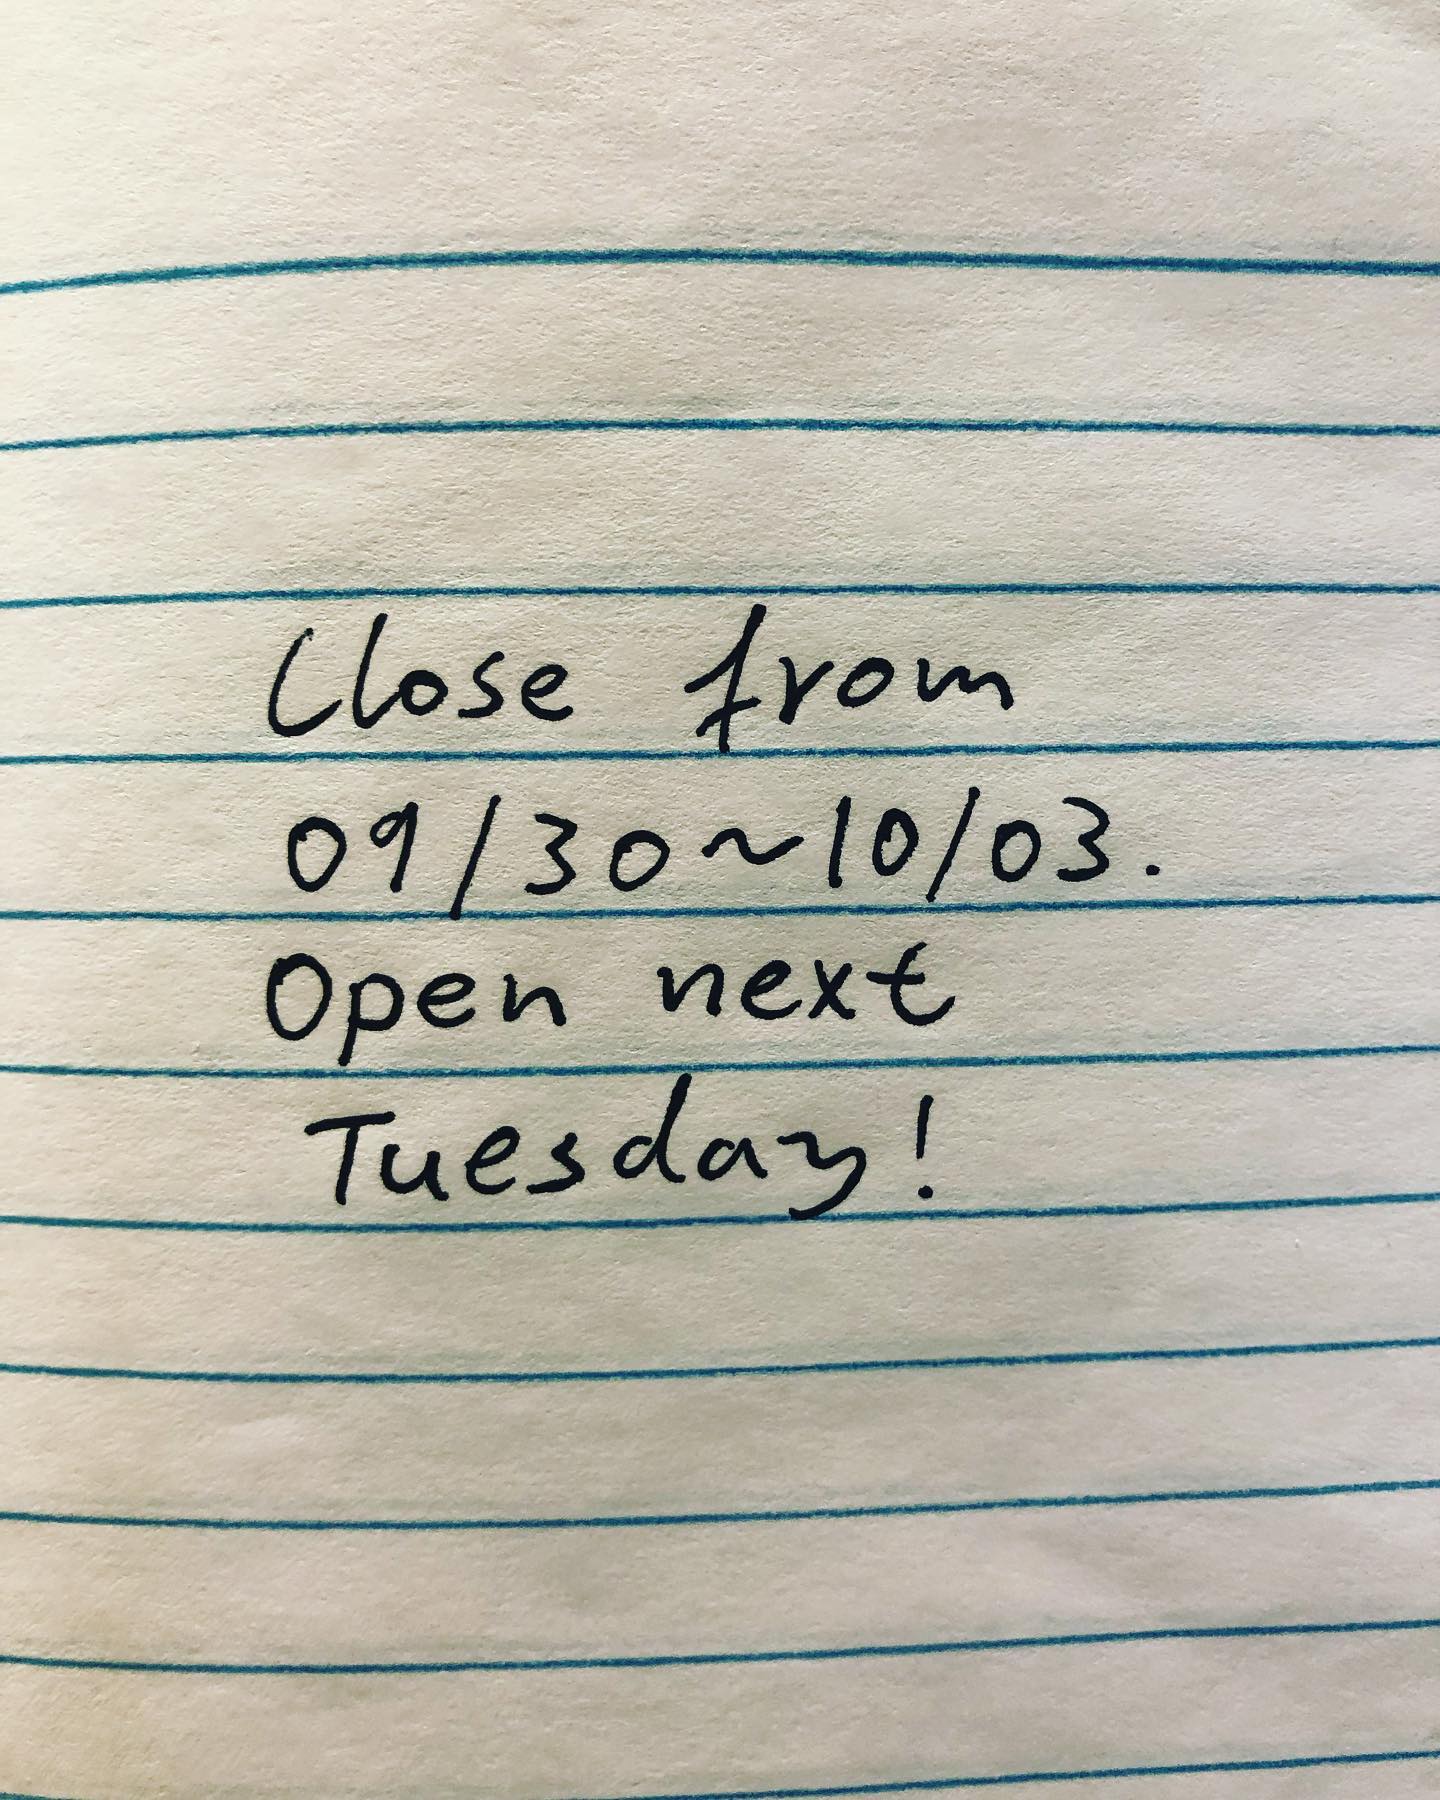 Close from
09/30~10/03.
Open next
Tuesday!